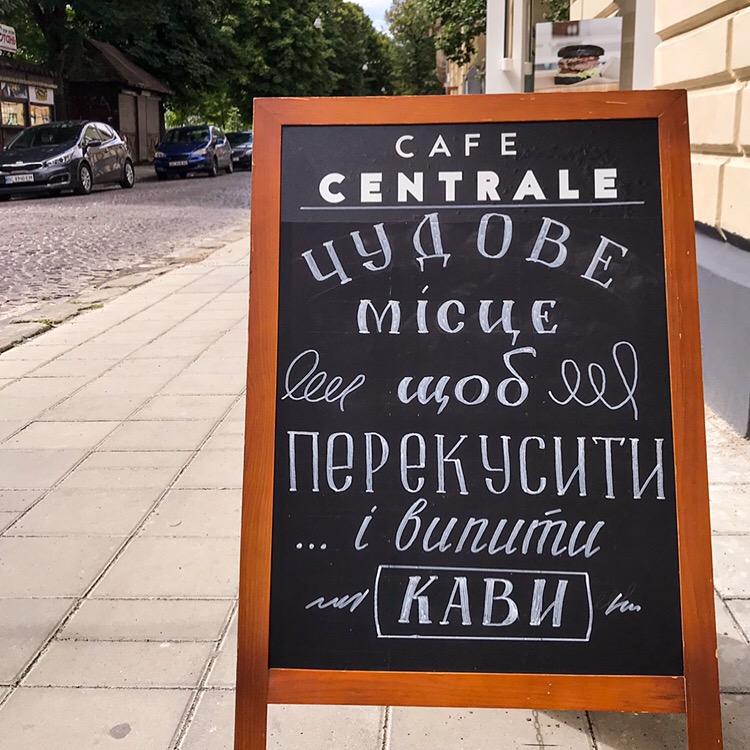 CAFE
CENTRALE
ЧУДОВЕ
місце
щоб
ПЕРЕКУСИТИ
... і випити
КАВИ